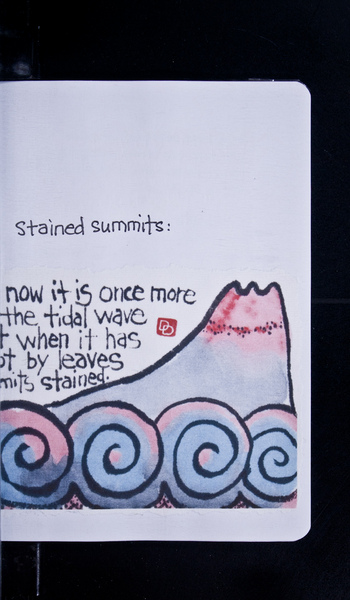 stained summits:
now it is once more
the tidal wave
when it has
by leaves
stained.